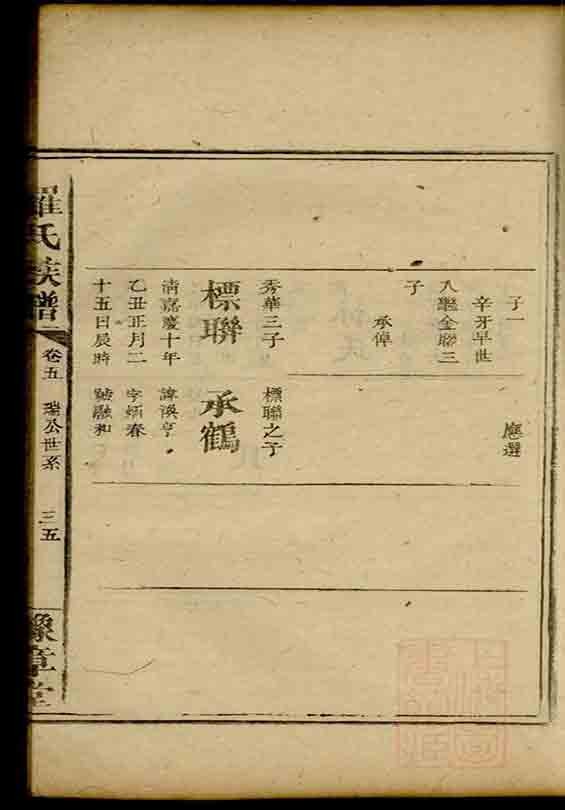 子一
辛牙早世
入繼金聯三
子
承倬
應選
秀華三子
標聯
清嘉慶十年
乙丑正月二
十五日辰時
標聯之子
承鶴
諱渙亨
字炳春
號融和
羅氏族譜
卷五
瑞公世系
三五
豫章堂